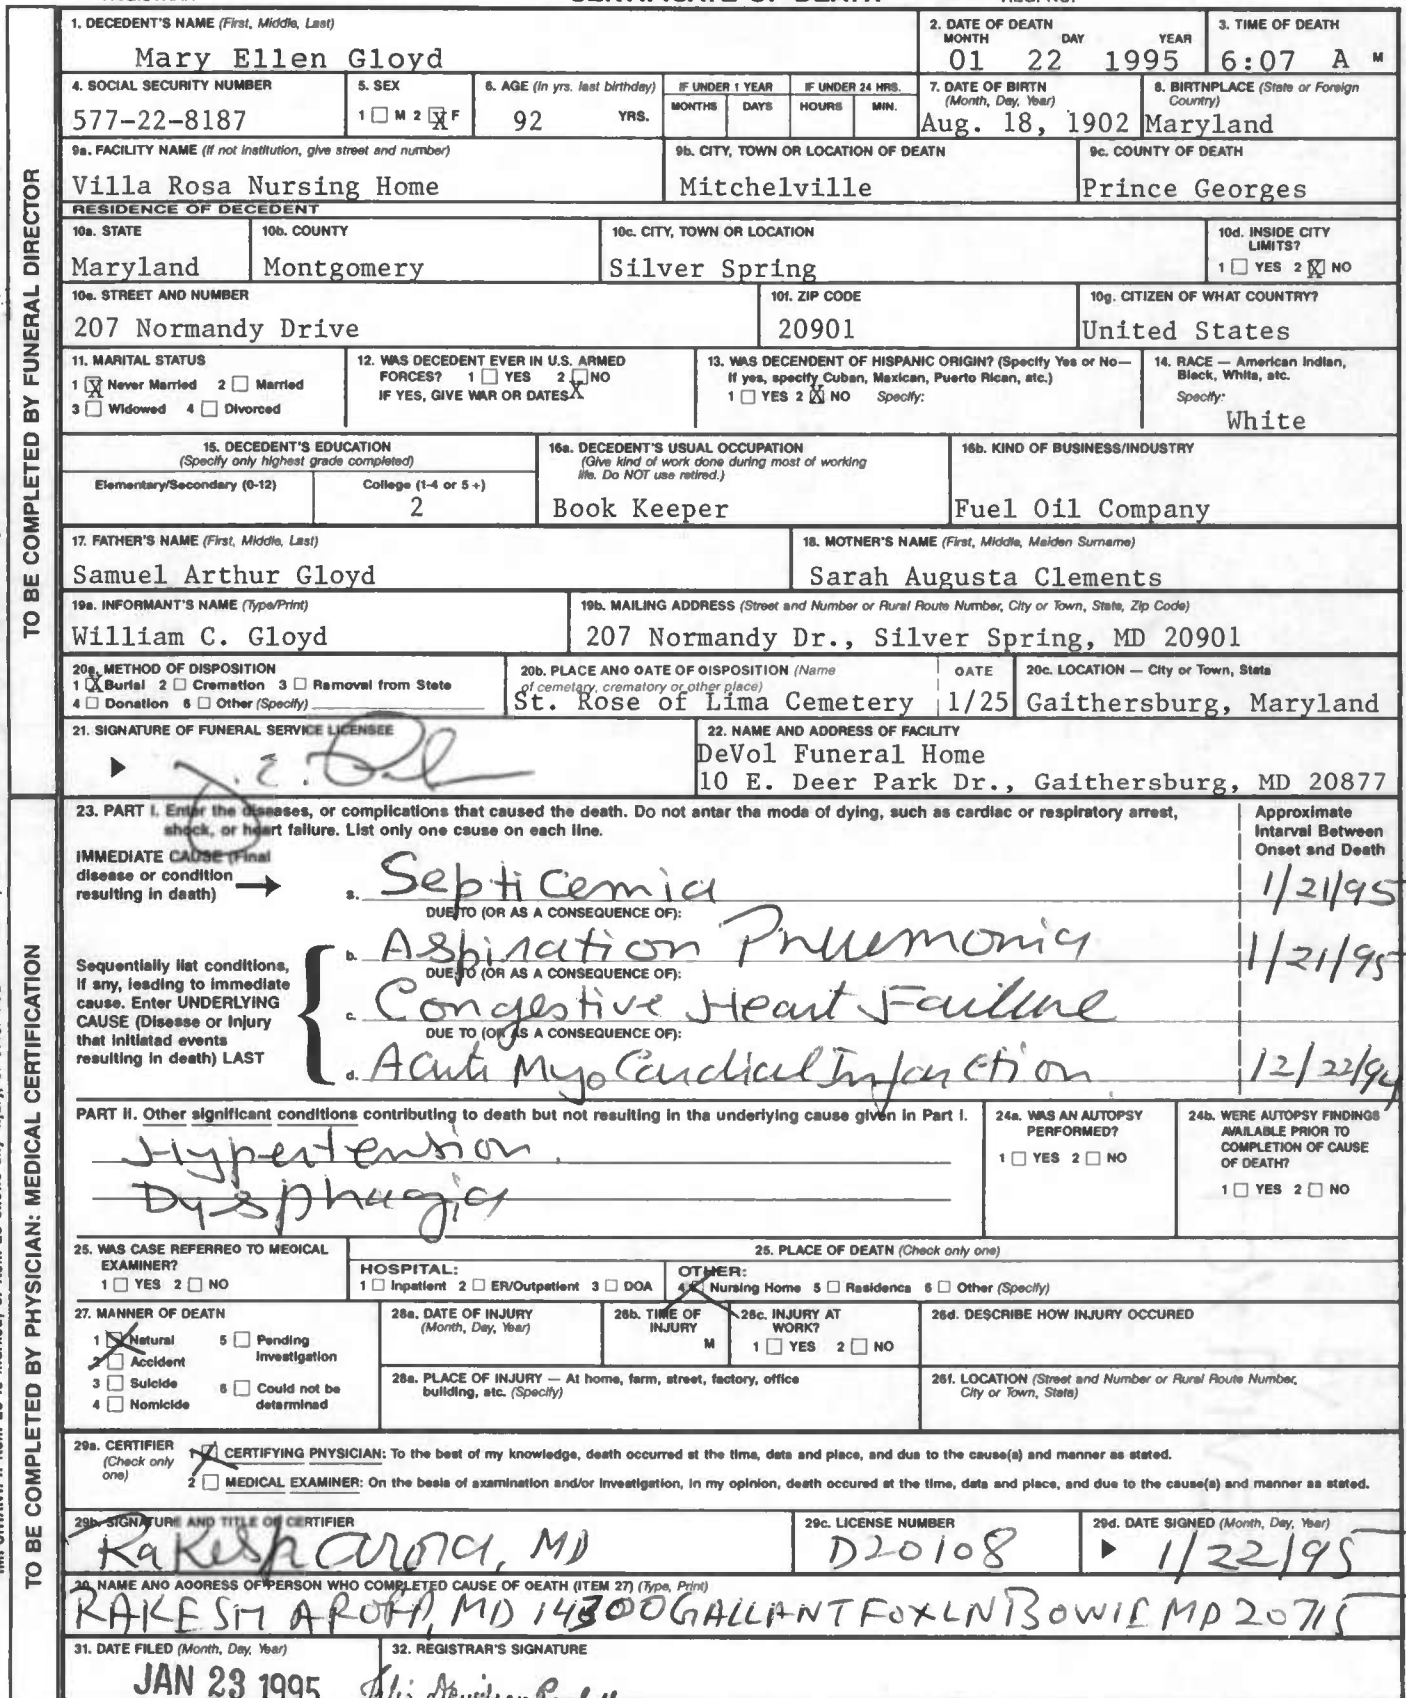 1. DECEDENT'S NAME (First, Middle, Last)
Mary Ellen Gloyd
2. DATE OF DEATH
MONTH DAY YEAR
01 22 1995
3. TIME OF DEATH
6:07 A M
4. SOCIAL SECURITY NUMBER
577-22-8187
5. SEX
1 ☐ M 2 ☒ F
6. AGE (In yrs. last birthday)
92 YRS.
IF UNDER 1 YEAR
MONTHS DAYS
IF UNDER 24 HRS.
HOURS MIN.
7. DATE OF BIRTH
(Month, Day, Year)
Aug. 18, 1902
8. BIRTNPLACE (State or Foreign
Country)
Maryland
9a. FACILITY NAME (If not institution, give street and number)
Villa Rosa Nursing Home
9b. CITY, TOWN OR LOCATION OF DEATH
Mitchelville
9c. COUNTY OF DEATH
Prince Georges
RESIDENCE OF DECEDENT
10a. STATE
Maryland
10b. COUNTY
Montgomery
10c. CITY, TOWN OR LOCATION
Silver Spring
10d. INSIDE CITY
LIMITS?
1 ☐ YES 2 ☒ NO
10e. STREET AND NUMBER
207 Normandy Drive
10f. ZIP CODE
20901
10g. CITIZEN OF WHAT COUNTRY?
United States
11. MARITAL STATUS
1 ☒ Never Married 2 ☐ Married
3 ☐ Widowed 4 ☐ Divorced
12. WAS DECEDENT EVER IN U.S. ARMED
FORCES? 1 ☐ YES 2 ☐ NO
IF YES, GIVE WAR OR DATES X
13. WAS DECENDENT OF HISPANIC ORIGIN? (Specify Yes or No—
If yes, specify Cuban, Mexican, Puerto Rican, etc.)
1 ☐ YES 2 ☒ NO Specify:
14. RACE — American Indian,
Black, White, etc.
Specify:
White
15. DECEDENT'S EDUCATION
(Specify only highest grade completed)
Elementary/Secondary (0-12)
College (1-4 or 5+)
2
16a. DECEDENT'S USUAL OCCUPATION
(Give kind of work done during most of working
life. Do NOT use retired.)
Book Keeper
16b. KIND OF BUSINESS/INDUSTRY
Fuel Oil Company
17. FATHER'S NAME (First, Middle, Last)
Samuel Arthur Gloyd
18. MOTHER'S NAME (First, Middle, Maiden Surname)
Sarah Augusta Clements
19a. INFORMANT'S NAME (Type/Print)
William C. Gloyd
19b. MAILING ADDRESS (Street and Number or Rural Route Number, City or Town, State, Zip Code)
207 Normandy Dr., Silver Spring, MD 20901
20a. METHOD OF DISPOSITION
1 ☒ Burial 2 ☐ Cremation 3 ☐ Removal from State
4 ☐ Donation 6 ☐ Other (Specify)
20b. PLACE ANO OATE OF OISPOSITION (Name
of cemetary, crematory or other place)
St. Rose of Lima Cemetery
OATE
1/25
20c. LOCATION — City or Town, State
Gaithersburg, Maryland
21. SIGNATURE OF FUNERAL SERVICE LICENSEE
22. NAME AND ADDRESS OF FACILITY
DeVol Funeral Home
10 E. Deer Park Dr., Gaithersburg, MD 20877
TO BE COMPLETED BY FUNERAL DIRECTOR
23. PART I. Enter the diseases, or complications that caused the death. Do not antar tha moda of dying, such as cardiac or respiratory arrest,
shock, or heart failure. List only one cause on each line.
Approximate
Intarval Between
Onset and Death
IMMEDIATE CAUSE (Final
disease or condition
resulting in daath)
a. Septicemia 1/21/95
DUE TO (OR AS A CONSEQUENCE OF):
b. Aspiration Pnuemonia 1/21/95
DUE TO (OR AS A CONSEQUENCE OF):
c. Congestive Heart Failure
DUE TO (OR AS A CONSEQUENCE OF):
d. Acute Myo Cardial Infarction 12/22/94
Sequentially liat conditions,
if any, leading to immediate
cause. Enter UNDERLYING
CAUSE (Disease or Injury
that initiatad events
resulting in death) LAST
PART II. Other significant conditions contributing to death but not resulting in tha underlying cause given in Part I.
Hypertension
Dysphagia
24a. WAS AN AUTOPSY
PERFORMED?
1 ☐ YES 2 ☐ NO
24b. WERE AUTOPSY FINDINGS
AVAILABLE PRIOR TO
COMPLETION OF CAUSE
OF DEATH?
1 ☐ YES 2 ☐ NO
25. WAS CASE REFERREO TO MEDICAL
EXAMINER?
1 ☐ YES 2 ☐ NO
25. PLACE OF DEATN (Check only one)
HOSPITAL:
1 ☐ Inpatient 2 ☐ ER/Outpatient 3 ☐ DOA
OTHER:
4 ☒ Nursing Home 5 ☐ Residence 6 ☐ Other (Specify)
27. MANNER OF DEATH
1 ☒ Natural 5 ☐ Pending
Investigation
2 ☐ Accident
3 ☐ Suicide 6 ☐ Could not be
determinad
4 ☐ Nomicide
28a. DATE OF INJURY
(Month, Day, Year)
26b. TIME OF
INJURY
M
28c. INJURY AT
WORK?
1 ☐ YES 2 ☐ NO
26d. DESCRIBE HOW INJURY OCCURED
28a. PLACE OF INJURY — At home, farm, street, factory, office
building, atc. (Specify)
26f. LOCATION (Street and Number or Rural Route Number,
City or Town, State)
29a. CERTIFIER
(Check only
one)
1 ☒ CERTIFYING PNYSICIAN: To the best of my knowledge, death occurred at the time, data and place, and dus to the cause(a) and manner as stated.
2 ☐ MEDICAL EXAMINER: On the basis of axamination and/or Investigation, In my opinion, death occured at the time, data and place, and due to the cause(a) and manner as stated.
29b. SIGNATURE AND TITLE OF CERTIFIER
Rakesh Arora, MD
29c. LICENSE NUMBER
D20108
29d. DATE SIGNED (Month, Day, Year)
1/22/95
30. NAME ANO AOORESS OF PERSON WHO COMPLETED CAUSE OF OEATH (ITEM 27) (Type, Print)
RAKESH ARORA, MD 14300 GALLANT FOX LN BOWIE MD 20715
31. DATE FILED (Month, Day, Year)
JAN 23 1995
32. REGISTRAR'S SIGNATURE
TO BE COMPLETED BY PHYSICIAN: MEDICAL CERTIFICATION